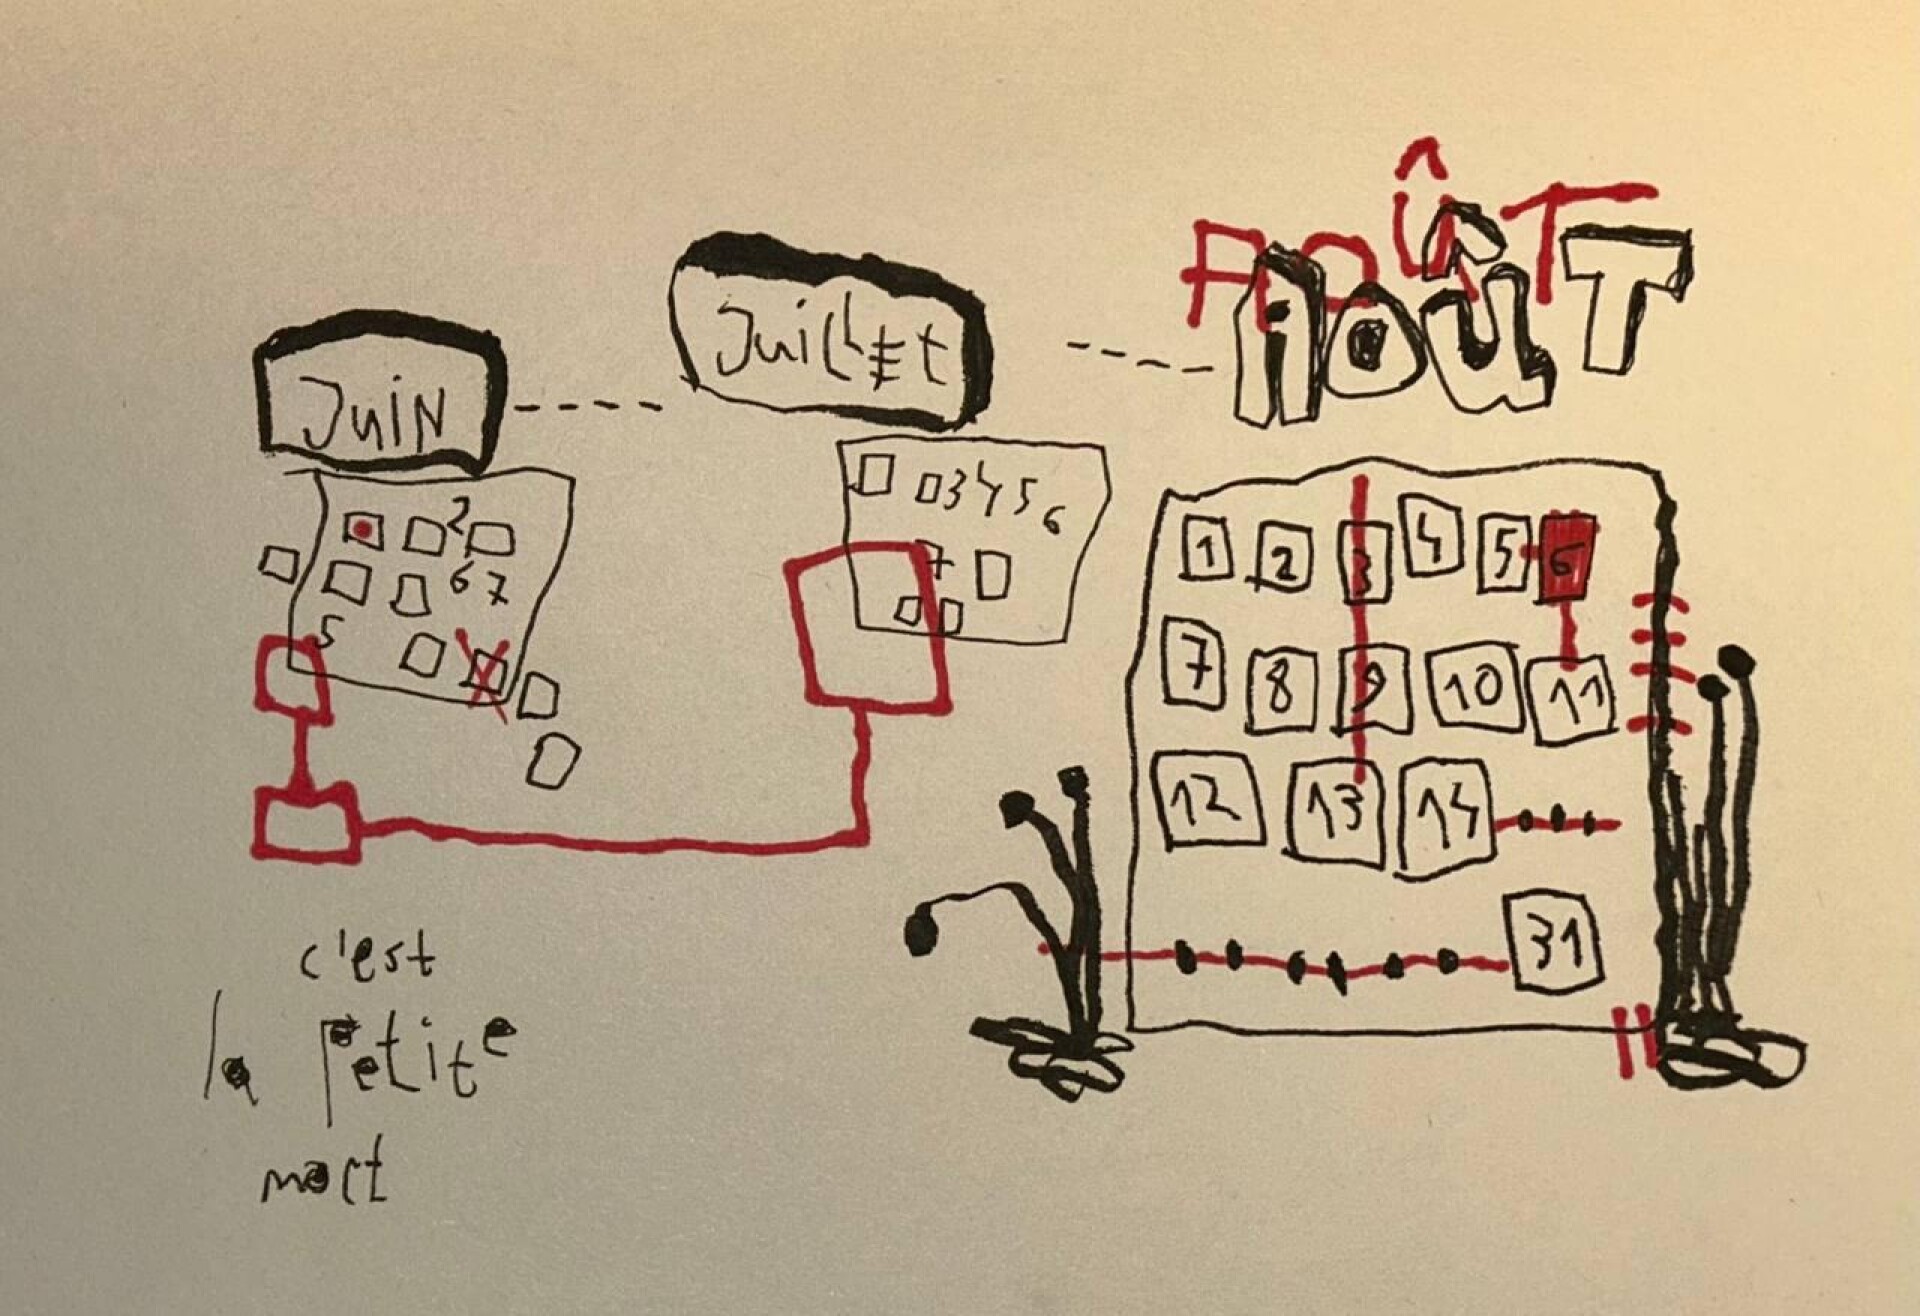 Juin
Juillet
AOÛT
AOÛT
2
6 7
5
3 4 5 6
7
1 2 3 4 5 6
7 8 9 10 11
12 13 14
31
c'est
la petite
mort